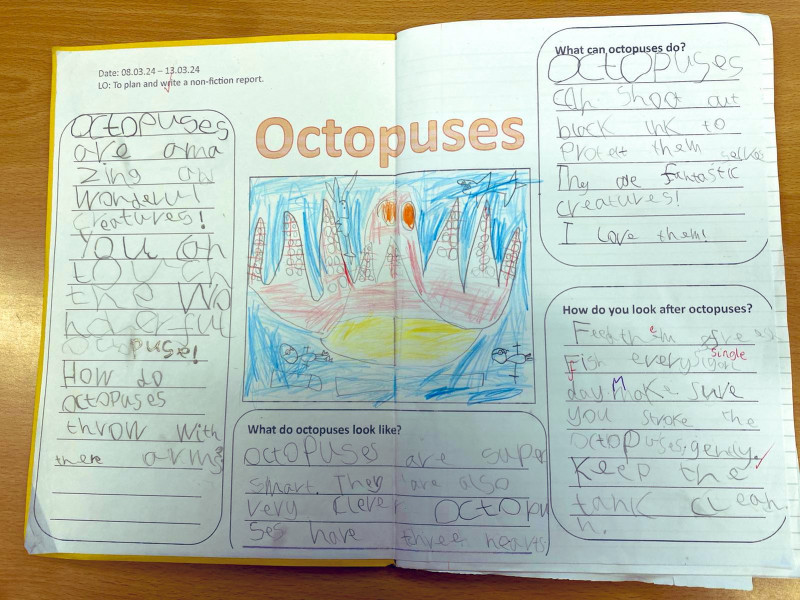 Date: 08.03.24 – 13.03.24
LO: To plan and write a non-fiction report.
octopuses
are ama
zing an
Wonderful
creatures!
you can
touch
the wo
nderful
octopuse!
How do
octopuses
throw with
there arms?
Octopuses
What do octopuses look like?
octopuses are super
smart. They are also
very clever octopu
ses have three hearts.
What can octopuses do?
octopuses
can shoot out
black ink to
Protect them selves
They are fantastic
creatures!
I love them!
How do you look after octopuses?
Feed them
fish every single
day Make sure
you stroke the
octopuses gently.
Keep the
tank clean
n.